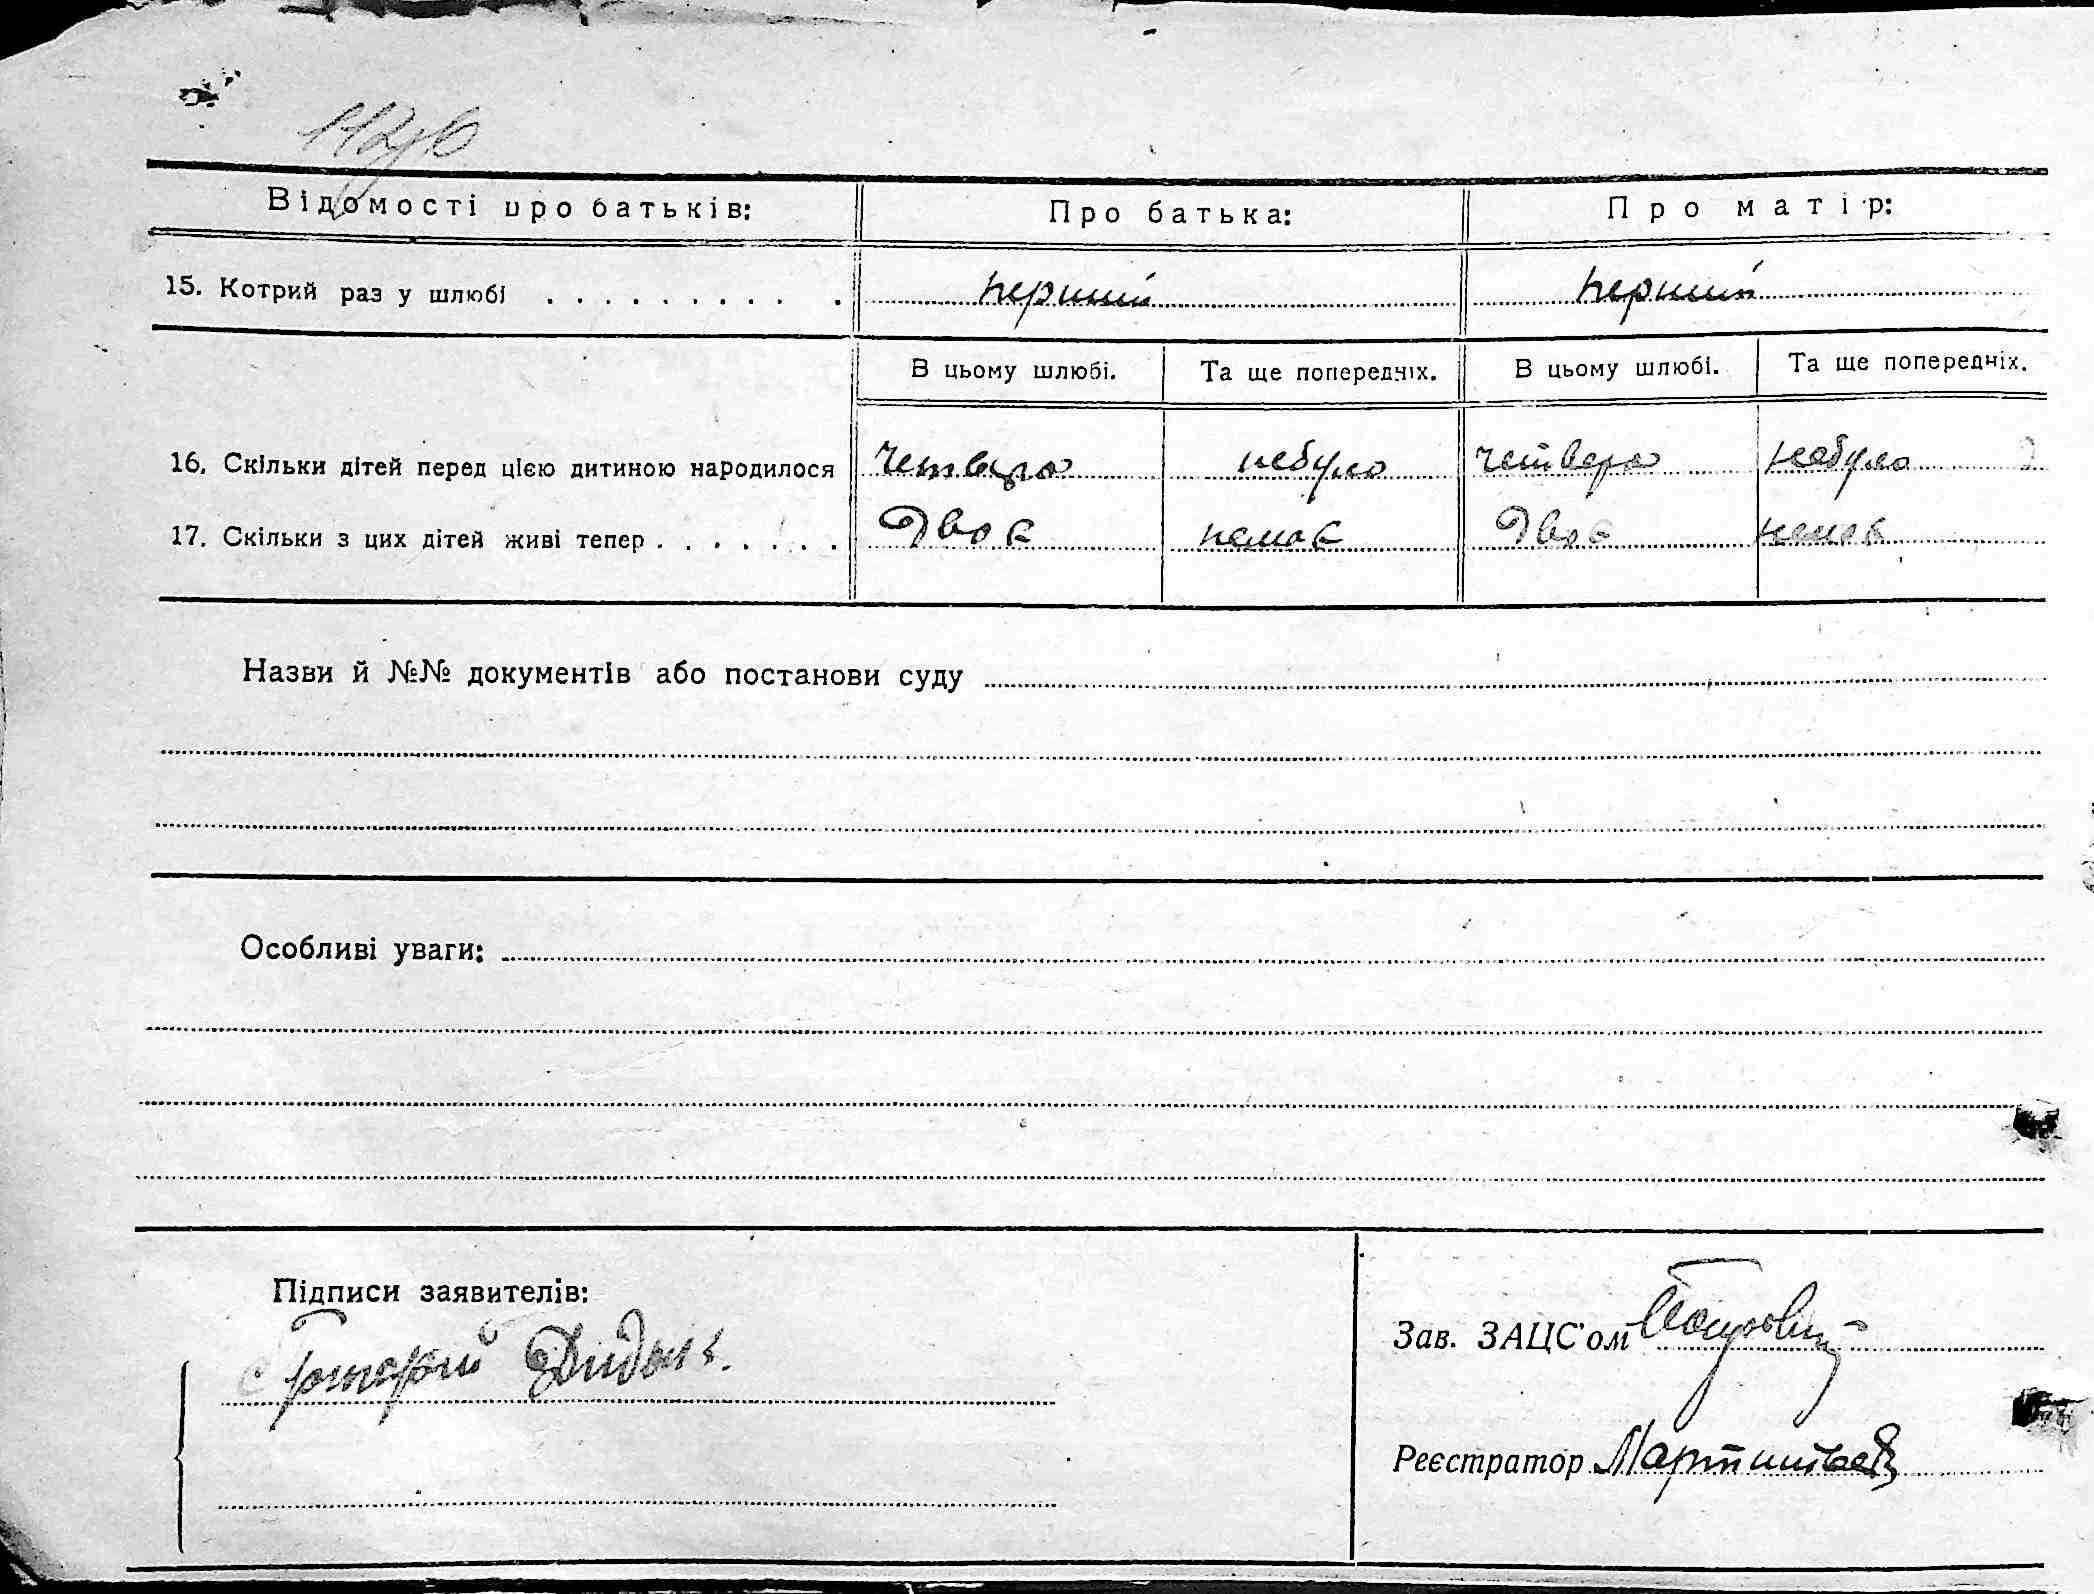 Відомості про батьків: Про батька: Про матір:
15. Котрий раз у шлюбі . . . . . . . . . . перший перший
В цьому шлюбі. Та ще попередніх. В цьому шлюбі. Та ще попередніх.
16. Скільки дітей перед цією дитиною народилося четверо небуло четверо небуло
17. Скільки з цих дітей живі тепер . . . . . . . Двоє немає Двоє немає
Назви й №№ документів або постанови суду
Особливі уваги:
Підписи заявителів:
Григорий
Зав. ЗАЦС'ом
Реєстратор